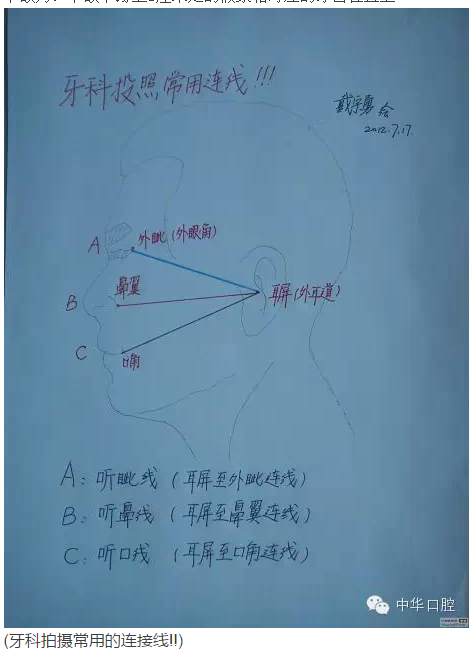 牙科投照常用连线!!!
戴宇勇绘
2012.7.17.
A
外眦(外眼角)
鼻翼
B
耳屏(外耳道)
C
口角
A:听眦线(耳屏至外眦连线)
B:听鼻线(耳屏至鼻翼连线)
C:听口线(耳屏至口角连线)
中华口腔
(牙科拍摄常用的连接线!!)